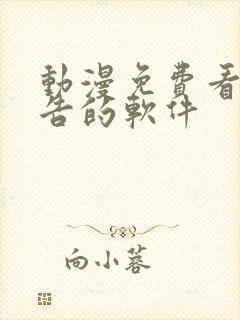 動漫免費看
告的軟件
向小蓉